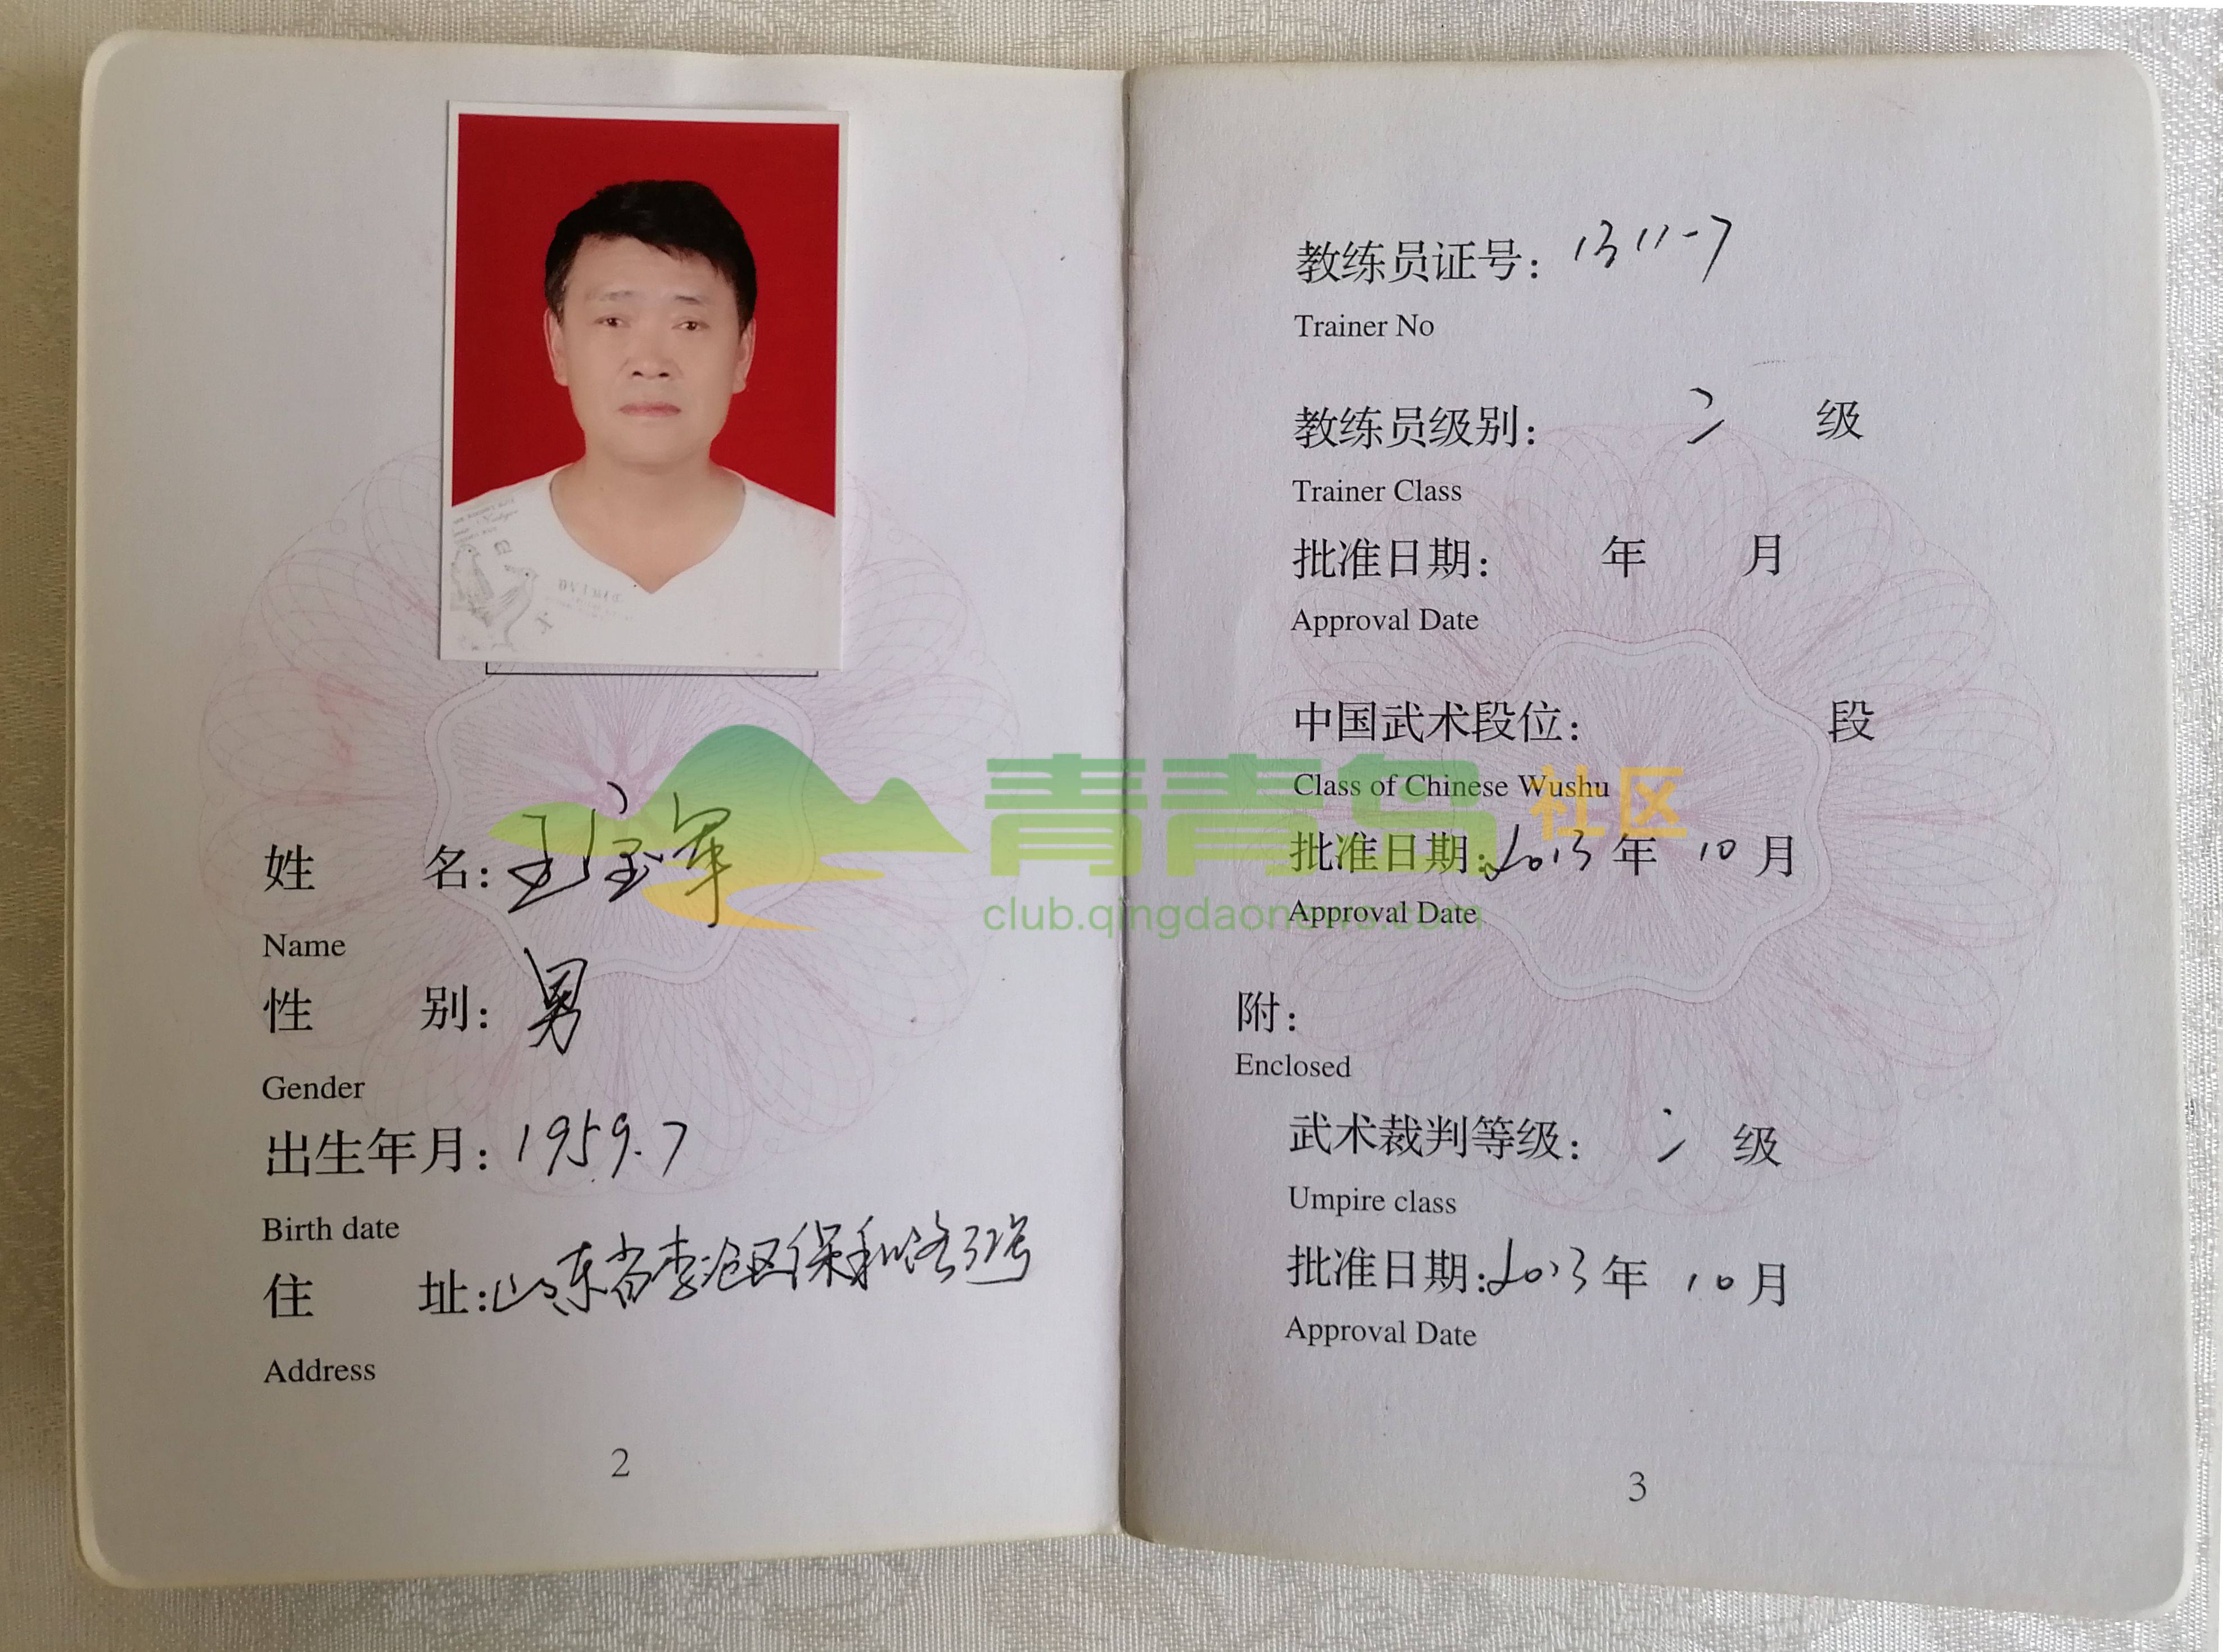 姓 名：王宝军
Name
性 别：男
Gender
出生年月：1959.7
Birth date
住 址：山东省李沧区保和路32号
Address
2
教练员证号：1311-7
Trainer No
教练员级别： 二 级
Trainer Class
批准日期： 年 月
Approval Date
中国武术段位： 段
Class of Chinese Wushu
批准日期：2013年 10月
Approval Date
附：
Enclosed
武术裁判等级： 二 级
Umpire class
批准日期：2013年 10月
Approval Date
3
青青岛社区
club.qingdaonews.com